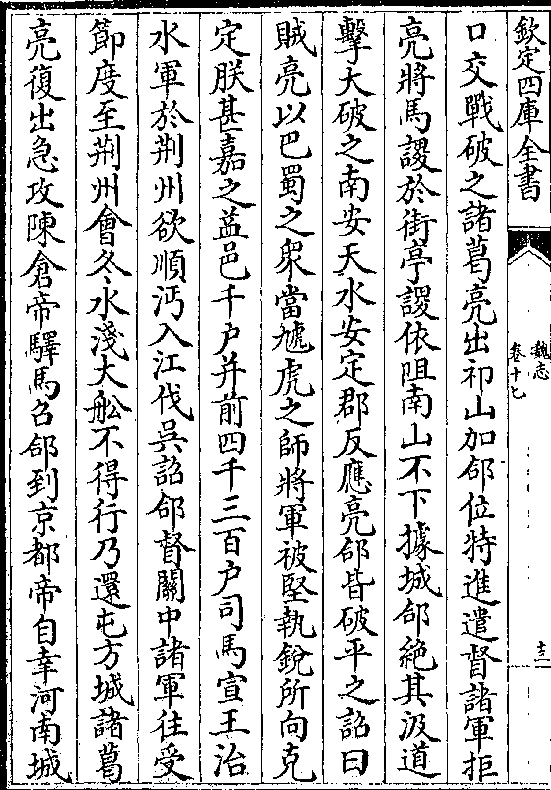 欽定四庫全書
魏志
卷十七
口交戰破之諸葛亮出祁山加郃位特進遣督諸軍拒
亮將馬謖於街亭謖依阻南山不下據城郃絶其汲道
擊大破之南安天水安定郡反應亮郃皆破平之詔曰
賊亮以巴蜀之衆當虓虎之師將軍被堅執銳所向克
定朕甚嘉之益邑千户并前四千三百户司馬宣王治
水軍於荆州欲順沔入江伐吴詔郃督關中諸軍往受
節度至荆州會冬水淺大船不得行乃還屯方城諸葛
亮復出急攻陳倉帝驛馬召郃到京都帝自幸河南城